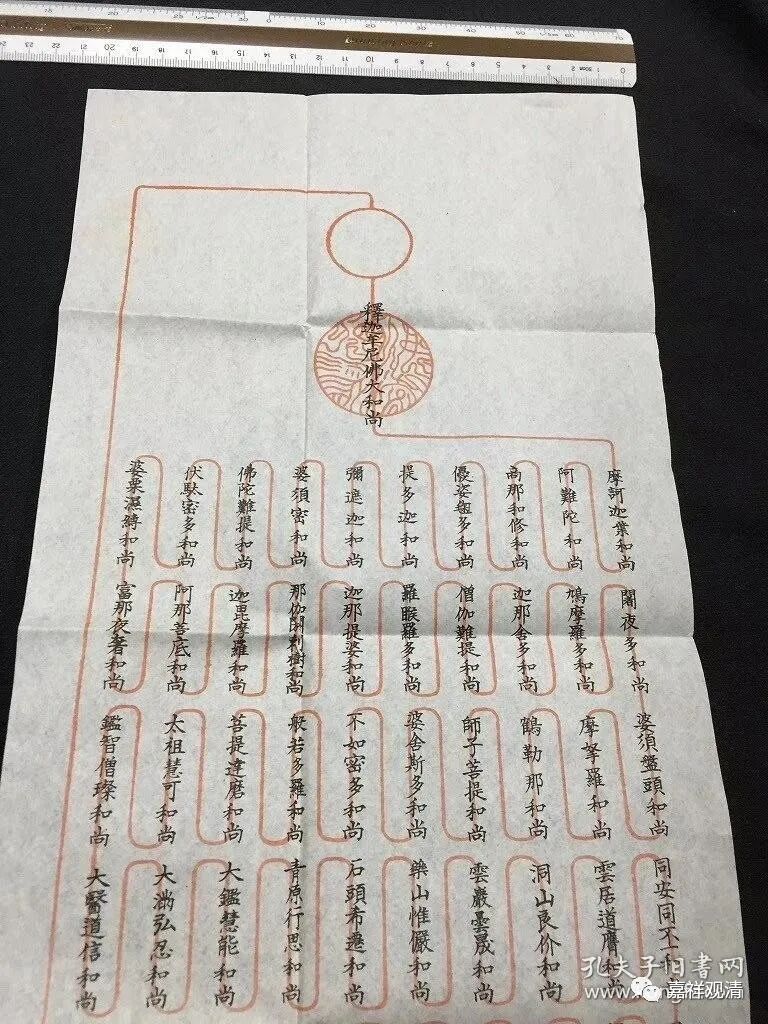 釋迦牟尼佛大和尚
摩訶迦葉和尚
阿難陀和尚
商那和修和尚
優婆毱多和尚
提多迦和尚
彌遮迦和尚
婆須密和尚
佛陀難提和尚
伏馱密多和尚
婆栗濕縛和尚
闍夜多和尚
鳩摩羅多和尚
迦那舍多和尚
僧伽難提和尚
羅睺羅多和尚
迦那提婆和尚
那伽閼剌樹和尚
迦毘摩羅和尚
阿那菩底和尚
富那夜奢和尚
婆須盤頭和尚
摩拏羅和尚
鶴勒那和尚
師子菩提和尚
婆舍斯多和尚
不如密多和尚
般若多羅和尚
菩提達磨和尚
太祖慧可和尚
鑑智僧璨和尚
同安同不和
雲居道膺和尚
洞山良价和尚
雲巖曇晟和尚
藥山惟儼和尚
石頭希遷和尚
青原行思和尚
大鑑慧能和尚
大満弘忍和尚
大醫道信和尚
孔夫子旧书网
嘉祥观清